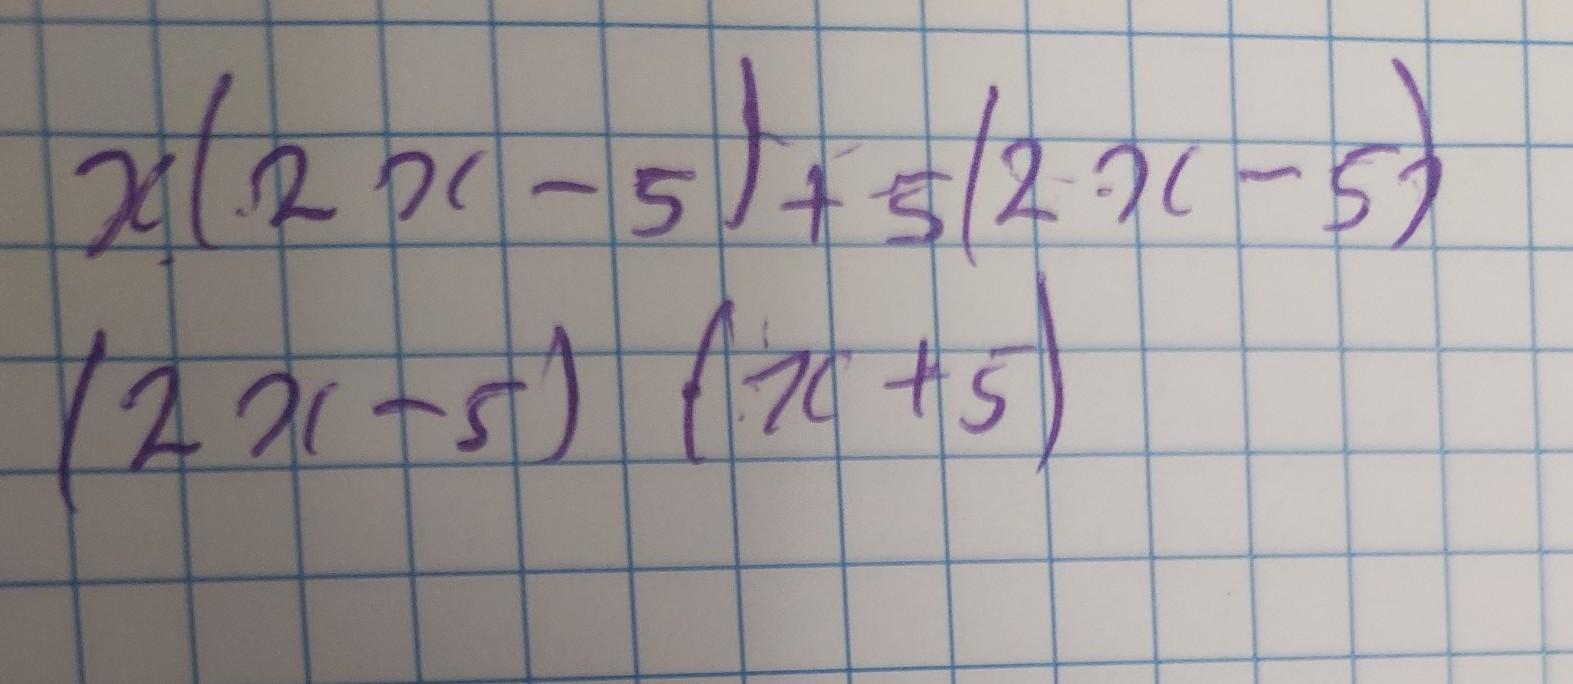 x(2x-5)+5(2x-5)
(2x-5) (x+5)